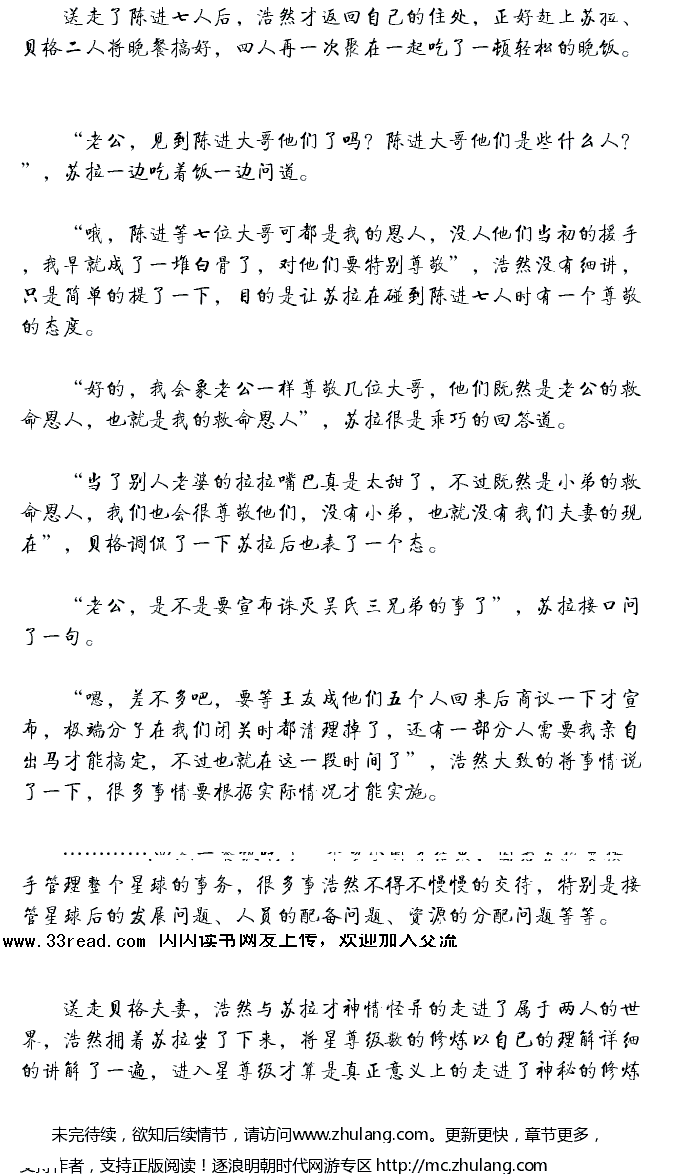 送走了陈进七人后，浩然才返回自己的住处，正好赶上苏拉、
贝格二人将晚餐搞好，四人再一次聚在一起吃了一顿轻松的晚饭。
“老公，见到陈进大哥他们了吗？陈进大哥他们是些什么人？
”，苏拉一边吃着饭一边问道。
“哦，陈进等七位大哥可都是我的恩人，没人他们当初的援手
，我早就成了一堆白骨了，对他们要特别尊敬”，浩然没有细讲，
只是简单的提了一下，目的是让苏拉在碰到陈进七人时有一个尊敬
的态度。
“好的，我会象老公一样尊敬几位大哥，他们既然是老公的救
命恩人，也就是我的救命恩人”，苏拉很是乖巧的回答道。
“当了别人老婆的拉拉嘴巴真是太甜了，不过既然是小弟的救
命恩人，我们也会很尊敬他们，没有小弟，也就没有我们夫妻的现
在”，贝格调侃了一下苏拉后也表了一个态。
“老公，是不是要宣布诛灭吴氏三兄弟的事了”，苏拉接口问
了一句。
“嗯，差不多吧，要等王友成他们五个人回来后商议一下才宣
布，极端分子在我们闭关时都清理掉了，还有一部分人需要我亲自
出马才能搞定，不过也就在这一段时间了”，浩然大致的将事情说
了一下，很多事情要根据实际情况才能实施。
手管理整个星球的事务，很多事浩然不得不慢慢的交待，特别是接
管星球后的发展问题、人员的配备问题、资源的分配问题等等。
www.33read.com 闪闪读书网友上传，欢迎加入交流
送走贝格夫妻，浩然与苏拉才神情怪异的走进了属于两人的世
界，浩然拥着苏拉坐了下来，将星尊级数的修炼以自己的理解详细
的讲解了一遍，进入星尊级才算是真正意义上的走进了神秘的修炼
未完待续，欲知后续情节，请访问www.zhulang.com。更新更快，章节更多，
支持作者，支持正版阅读！逐浪明朝时代网游专区 http://mc.zhulang.com